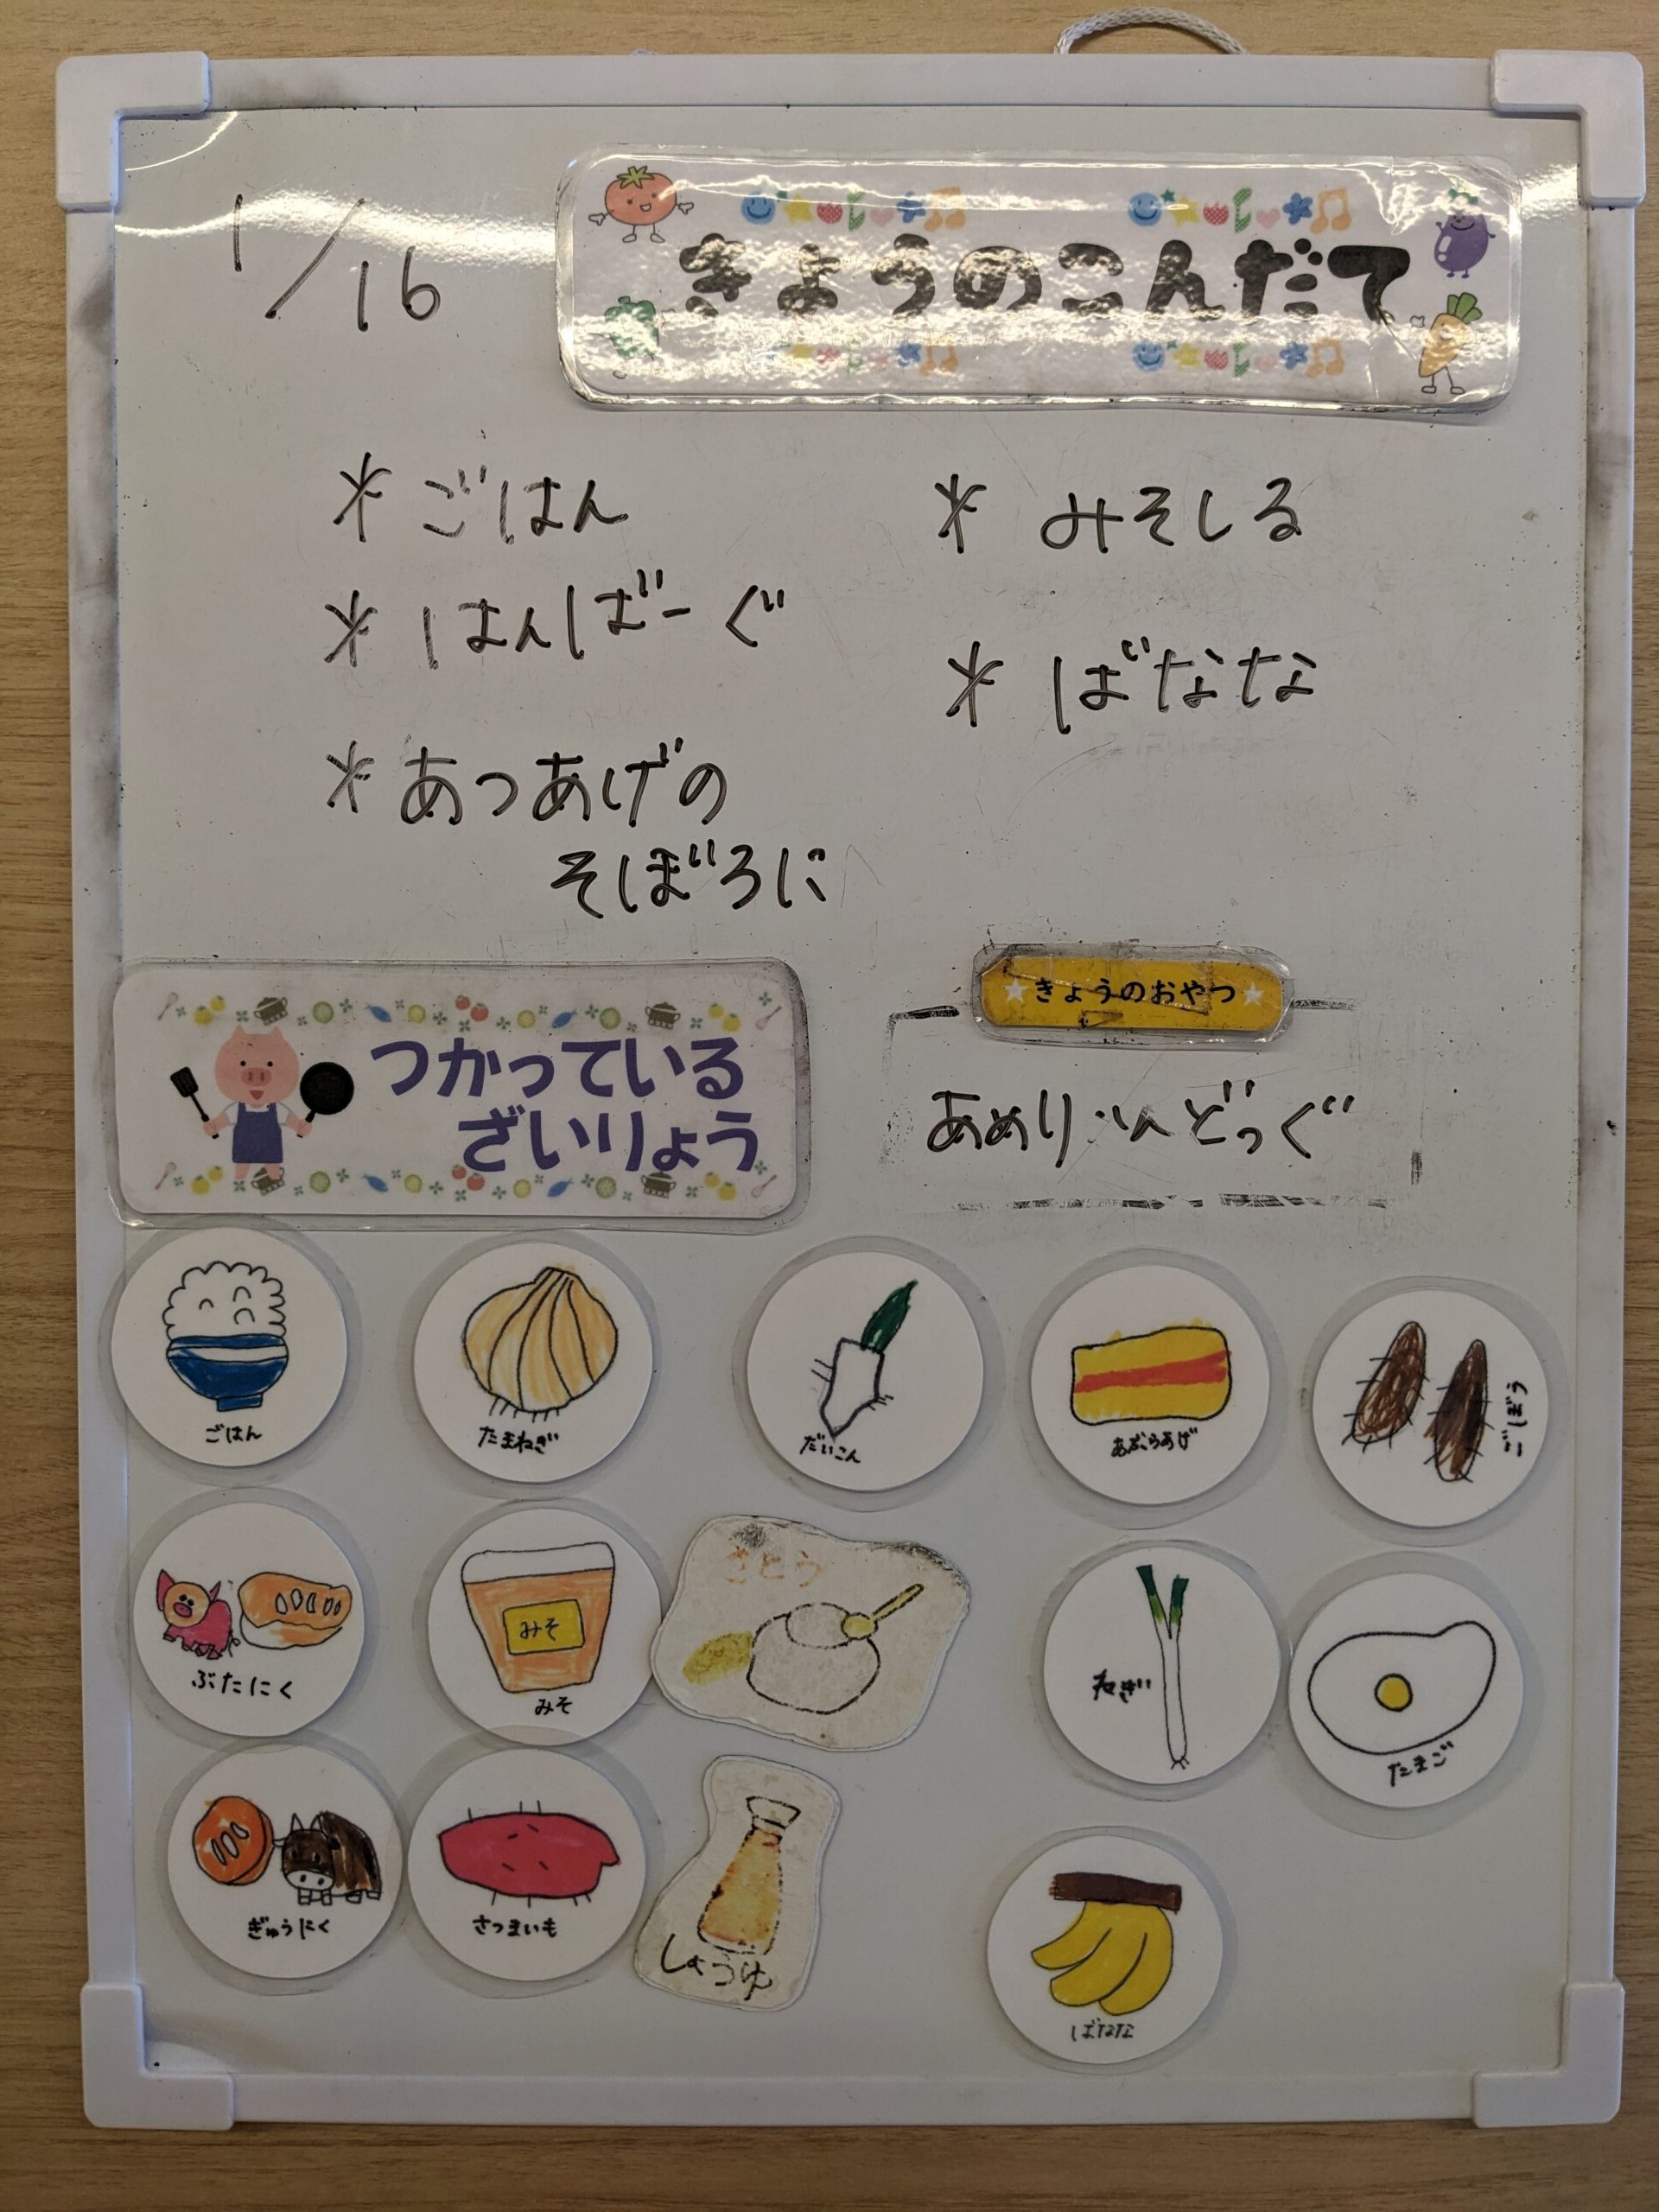 1/16
きょうのこんだて
* ごはん
* はんばーぐ
* あつあげの
そぼろに
* みそしる
* ばなな
きょうのおやつ
あめりかんどっぐ
つかっている
ざいりょう
ごはん
たまねぎ
だいこん
あぶらあげ
ごぼう
ぶたにく
みそ
みそ
さとう
ねぎ
たまご
ぎゅうにく
さつまいも
しょうゆ
ばなな